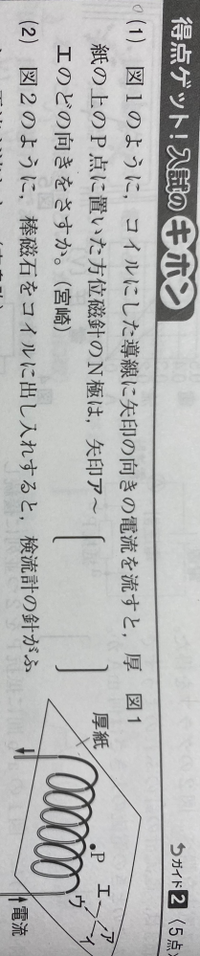 得点ゲット!入試のキホン
ガイド2〈5点〉
(1) 図1のように，コイルにした導線に矢印の向きの電流を流すと，厚
紙の上のP点に置いた方位磁針のN極は，矢印ア〜
エのどの向きをさすか。(宮崎)
〔 〕
図1
厚紙
P
ア
イ
ウ
エ
電流
(2) 図2のように，棒磁石をコイルに出し入れすると，検流計の針がふ